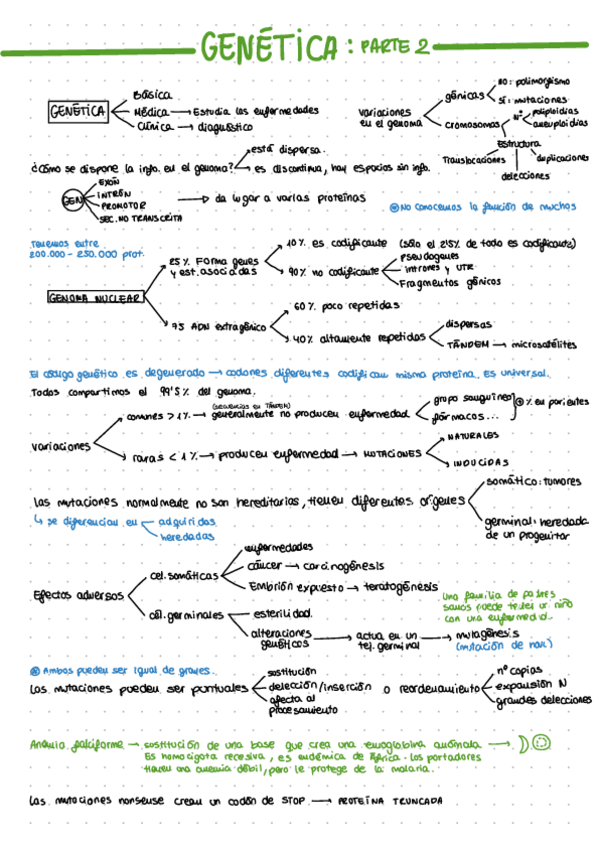 GENÉTICA: PARTE 2
GENÉTICA
Básica
Médica → Estudia las enfermedades
Clínica → diagnóstico
variaciones en el genoma
génicas
NO: polimorfismo
SÍ: mutaciones
cromosomas
Nº
poliploidías
aneuploidías
Estructura
Translocaciones
delecciones
duplicaciones
¿Cómo se dispone la info. en el genoma?
está dispersa.
es discontinua, hay espacios sin info.
GEN
EXÓN
INTRÓN
PROMOTOR
SEC. NO TRANSCRITA
→ da lugar a varias proteínas
No conocemos la función de muchos
Tenemos entre
200.000 - 250.000 prot.
GENOMA NUCLEAR
25% Forma genes
y est. asociadas
10% es codificante (sólo el 2'5% de todo es codificante)
90% no codificante
pseudogenes
intrones y UTR
Fragmentos génicos
75 ADN extragénico
60% poco repetidas
40% altamente repetidas
dispersas
TÁNDEM → microsatélites
El código genético es degenerado → codones diferentes codifican misma proteína. Es universal.
Todos compartimos el 99'5% del genoma.
variaciones
comunes > 1% → generalmente no producen enfermedad
(secuencias en TÁNDEM)
grupo sanguíneo
fármacos...
% en parientes
raras < 1% → producen enfermedad → MUTACIONES
NATURALES
INDUCIDAS
las mutaciones normalmente no son hereditarias, tienen diferentes orígenes
somático: tumores
germinal: heredada
de un progenitor
↳ se diferencian en
adquiridas
heredadas
Efectos adversos
cel. somáticas
enfermedades
cáncer → carcinogénesis
Embrión expuesto → teratogénesis
cél. germinales
esterilidad
alteraciones
genéticos
→ actúa en un
tej. germinal
→ mutagénesis
(mutación de novo)
una familia de padres
sanos puede tener un niño
con una enfermedad.
Ambos pueden ser igual de graves.
Las mutaciones pueden ser puntuales
sustitución
delección/inserción
afecta al
procesamiento
o reordenamiento
nº copias
expansión N
grandes delecciones
Anemia falciforme → sustitución de una base que crea una emoglobina anómala →
Es homocigota recesiva, es endémica de África. Los portadores
tienen una anemia débil, pero le protege de la malaria.
Las mutaciones nonsense crean un codón de STOP → PROTEÍNA TRUNCADA